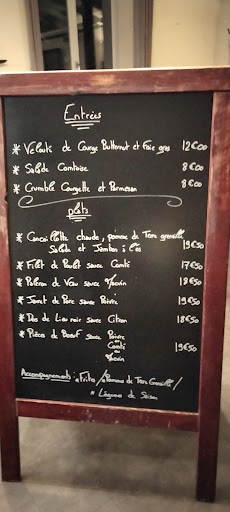 Entrées
* Velouté de Courge Butternut et Foie gras 12€00
* Salade Comtoise 8€00
* Crumble Courgette et Parmesan 8€00
plats
* Cancoillotte chaude, pomme de Terre grenaille
Salade et Jambon à l'os 19€50
* Filet de Poulet sauce Comté 17€50
* de Veau sauce 18€50
* Jarret de Porc sauce Poivre 19€50
* Dos de Lieu noir sauce Citron 18€50
* Pièce de Boeuf sauce Poivre
ou
Comté
ou 19€50
Accompagnements : * Frites / * Pommes de Terre Grenailles /
* Légumes de Saison